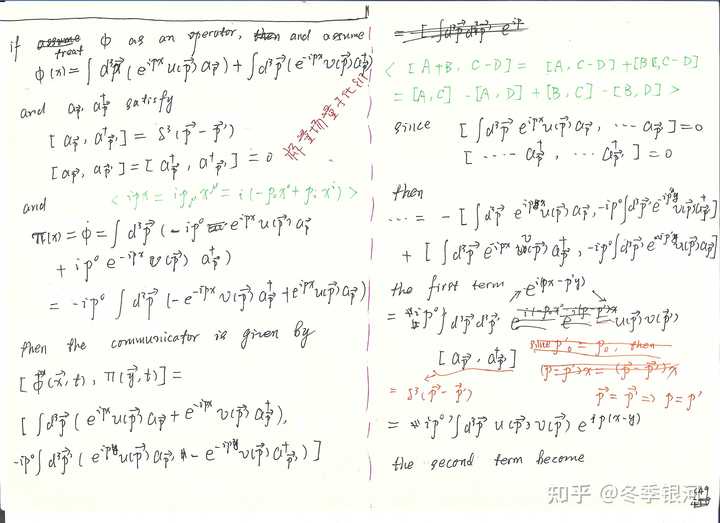 if treat ϕ as an operator, and assume
ϕ(x) = ∫d³p⃗ (e^{ipx} u(p⃗) a_p⃗) + ∫d³p⃗ (e^{-ipx} v(p⃗) a†_p⃗)
and a_p⃗, a†_p⃗ satisfy
[a_p⃗, a†_p⃗'] = δ³(p⃗ - p⃗')
[a_p⃗, a_p⃗'] = [a†_p⃗, a†_p⃗'] = 0
标量场量子化
and <ipx = ip_μ x^μ = i(-p₀x⁰ + p_i x^i)>
π(x) = ϕ̇ = ∫d³p⃗ (-ip⁰ e^{ipx} u(p⃗) a_p⃗
+ ip⁰ e^{-ipx} v(p⃗) a†_p⃗)
= -ip⁰ ∫d³p⃗ (-e^{-ipx} v(p⃗) a†_p⃗ + e^{ipx} u(p⃗) a_p⃗)
then the communicator is given by
[ϕ(x⃗,t), π(y⃗,t)] =
[∫d³p⃗ (e^{ipx} u(p⃗) a_p⃗ + e^{-ipx} v(p⃗) a†_p⃗),
-ip⁰∫d³p⃗' (e^{ip'y} u(p⃗') a_p⃗' - e^{-ip'y} v(p⃗') a†_p⃗')]
<[A+B, C-D] = [A, C-D] + [B, C-D]
= [A,C] - [A,D] + [B,C] - [B,D]>
since [∫d³p⃗ e^{ipx} u(p⃗) a_p⃗, ··· a_p⃗'] = 0
[···· a†_p⃗, ··· a†_p⃗'] = 0
then
··· = -[∫d³p⃗ e^{ipx} u(p⃗) a_p⃗, -ip⁰∫d³p⃗' e^{-ip'y} v(p⃗') a†_p⃗']
+ [∫d³p⃗ e^{-ipx} v(p⃗) a†_p⃗, -ip⁰∫d³p⃗' e^{ip'y} u(p⃗') a_p⃗']
the first term e^{i(px-p'y)}
= ip⁰∫d³p⃗ d³p⃗' u(p⃗) v(p⃗')
[a_p⃗, a†_p⃗']
= δ³(p⃗ - p⃗') p⃗ = p⃗' => p = p'
= ip⁰∫d³p⃗ u(p⃗) v(p⃗) e^{ip(x-y)}
the second term become
知乎 @冬季银河